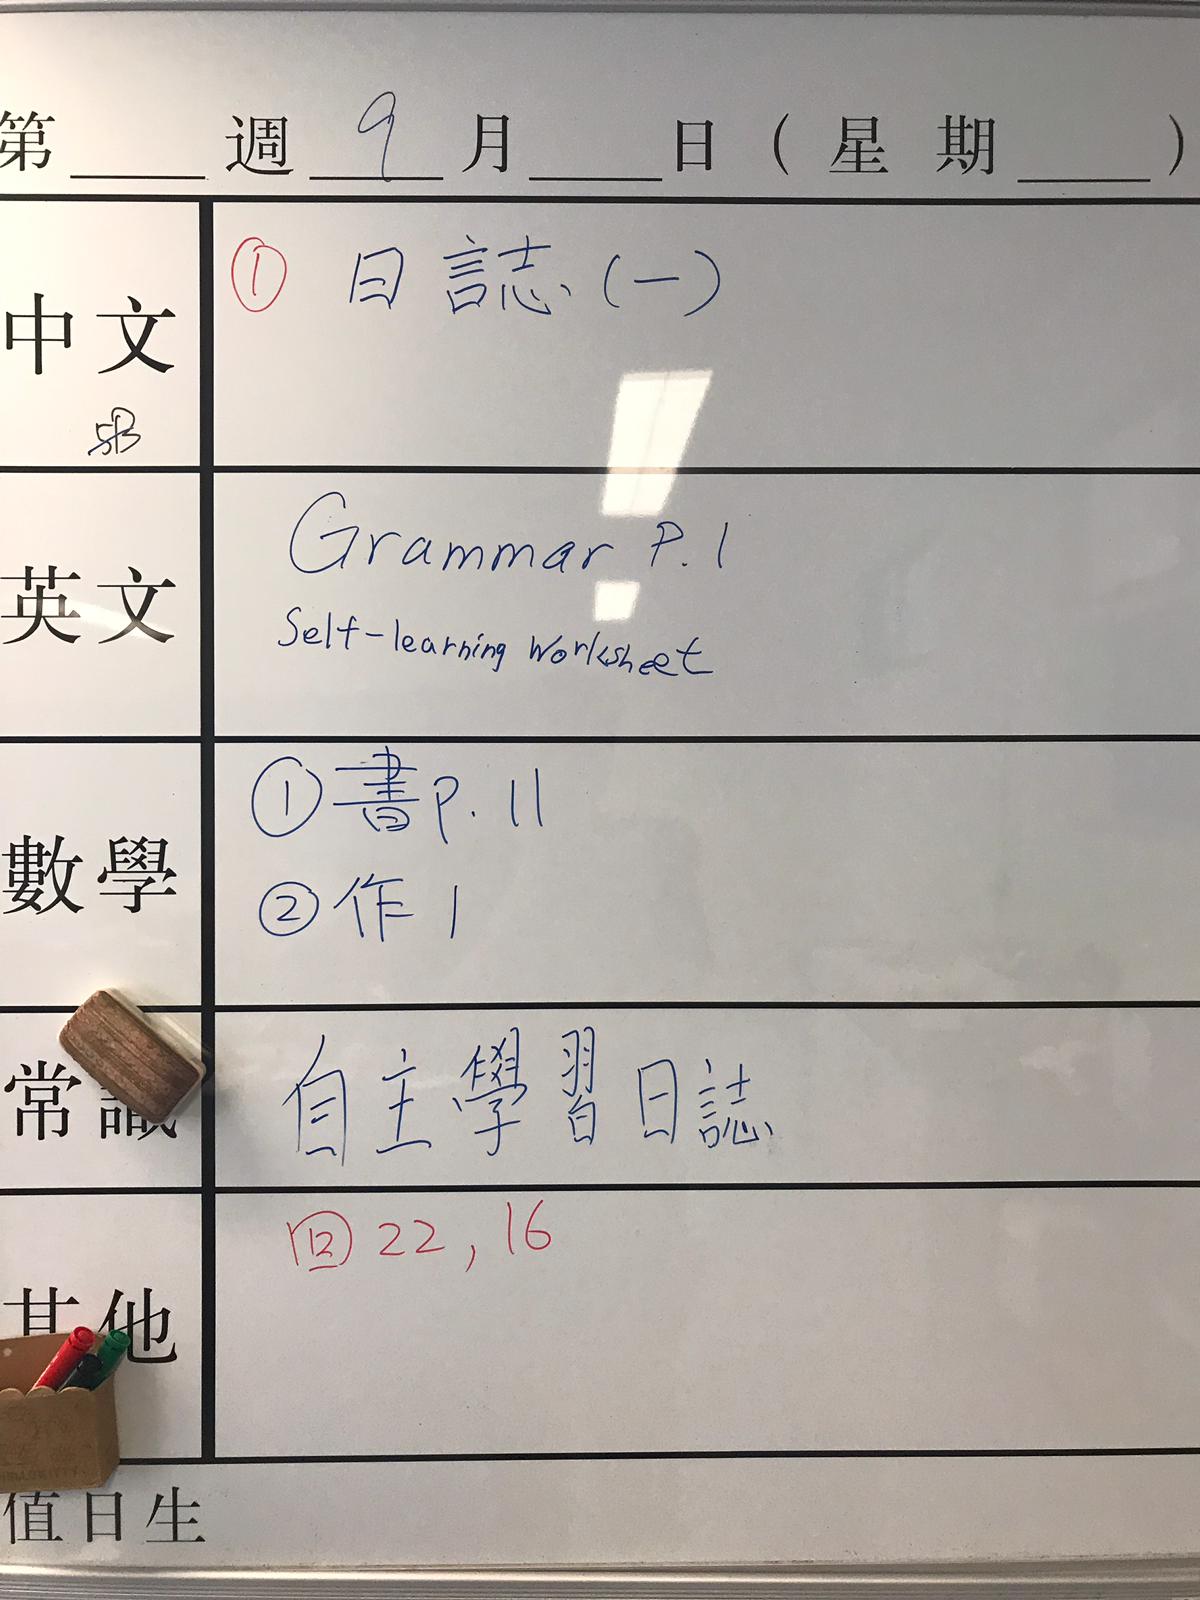 第 週 9 月 日 ( 星 期 )
中文
① 日誌(一)
5B
英文
Grammar P.1
Self-learning Worksheet
數學
① 書P.11
② 作1
常識
自主學習日誌
其他
22, 16
值日生